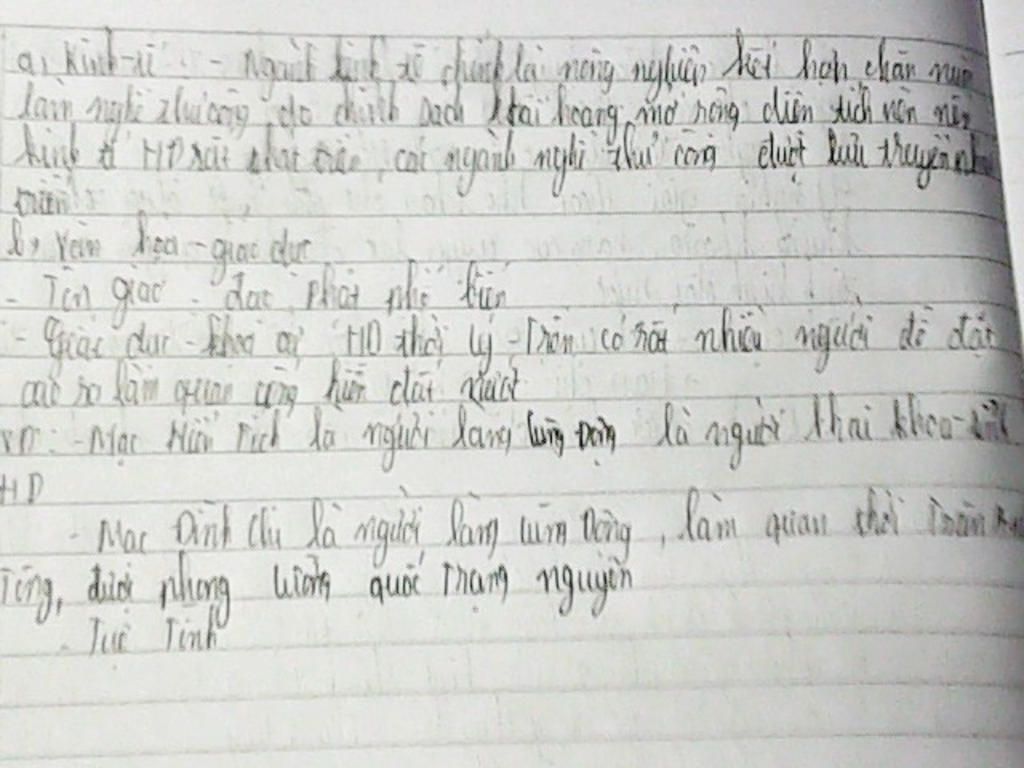 a, Kinh tế: - Ngành kinh tế chính là nông nghiệp kết hợp chăn nuô
làm nghề thủ công do chính sách khai hoang mở rộng diện tích nên
kinh tế HD rất phát triển, các ngành nghề thủ công được lưu truyền
triển
b, Văn hóa - giáo dục
- Tôn giáo - đạo phật phổ biến
- Giáo dục - khoa cử HD thời Lý - Trần có rất nhiều người đỗ đạt
cao ra làm quan cống hiến đất nước
VD: - Mạc Hiển Tích là người làng Lũng Động là người khai khoa tỉnh
HD
- Mạc Đĩnh Chi là người làng Lũng Động, làm quan thời Trần
Tông, được phong Lưỡng quốc Trạng nguyên
- Tuệ Tĩnh